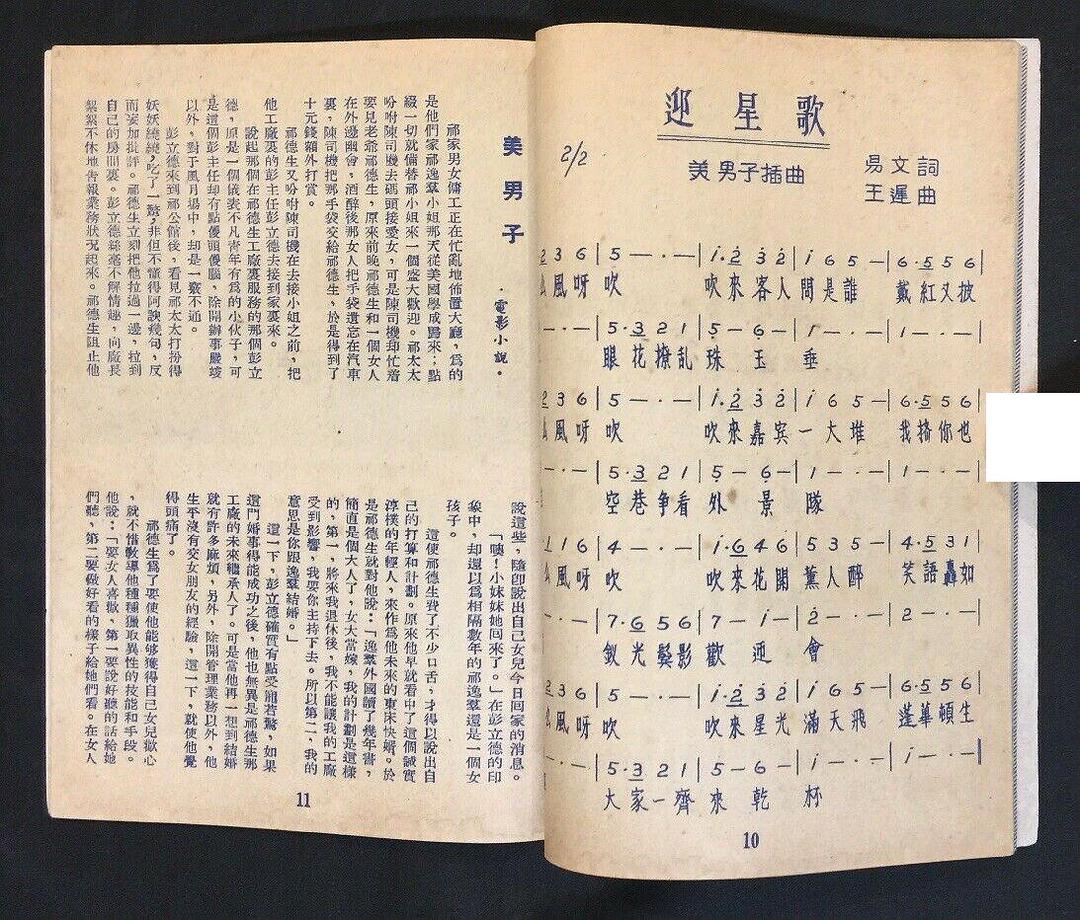 迎星歌
2/2
美男子插曲
易文詞
王遲曲
2 3 6 | 5 — · — | i·2 3 2 | i 6 5 — | 6·5 5 6 |
風呀吹 吹來客人問是誰 戴紅又披
— · — | 5·3 2 1 | 5 — 6 — | 1 — · — | 1 — · — |
眼花撩乱珠玉垂
2 3 6 | 5 — · — | i·2 3 2 | i 6 5 — | 6·5 5 6 |
風呀吹 吹來嘉宾一大堆 我擠你也
— · — | 5·3 2 1 | 5 — 6 — | 1 — · — | 1 — · — |
空巷争看外景隊
1 1 6 | 4 — · — | i·6 4 6 | 5 3 5 — | 4·5 3 1 |
風呀吹 吹來花開薰人醉 笑語轟如
— · — | 7·6 5 6 | 7 — i — | 2 — · — | 2 — · — |
釵光鬓影歡迎會
2 3 6 | 5 — · — | i·2 3 2 | i 6 5 — | 6·5 5 6 |
風呀吹 吹來星光滿天飛 蓬蓽頓生
— · — | 5·3 2 1 | 5 — 6 — | i — · — | i — · — |
大家一齊來乾杯
10
美男子
·電影小說·
祁家男女傭工正在忙亂地佈置大廳，爲的
是他們家祁逸羣小姐那天從美國學成歸來；點
綴一切就備替祁小姐來一個盛大歡迎。祁太太
吩咐陳司機去碼頭接愛女，可是陳司機却忙着
要見老爺祁德生，原來前晚祁德生和一個女人
在外邊幽會，酒醉後那女人把手袋遺忘在汽車
裏，陳司機把那手袋交給祁德生，於是得到了
十元錢額外打賞。
祁德生又吩咐陳司機在去接小姐之前，把
他工廠裏的彭主任彭立德去接到家裏來。
說起那個在祁德生工廠裏服務的那個彭立
德，原是一個儀表不凡青年有爲的小伙子，可
是這個彭主任却有點傻頭傻腦，除開辦事嚴竣
以外，對于風月場中，却是一竅不通。
彭立德來到祁公館後，看見祁太太打扮得
妖妖繞繞，吃了一驚，非但不懂得阿諛幾句，反
而妄加批評。祁德生立刻把他拉過一邊，拉到
自己的房間裏。彭立德絲毫不解情趣，向廠長
絮絮不休地告報業務狀况起來。祁德生阻止他
說這些，隨卽說出自己女兒今日回家的消息。
「噢！小妹妹她囘來了。」在彭立德的印
象中，却還以爲相隔數年的祁逸羣還是一個女
孩子。
這使祁德生費了不少口舌，才得以說出自
己的打算和計劃。原來他早就看中了這個誠實
淳樸的年輕人，來作爲他未來的東床快婿。於
是祁德生就對他說：「逸羣外國讀了幾年書，
簡直是個大人了，女大當嫁，我的計劃是這樣
的，第一，將來我退休後，我不能讓我的工廠
受到影響，我要你主持下去。所以第二，我的
意思是你跟逸羣結婚。」
這一下，彭立德確實有點受寵若驚，如果
這門婚事得能成功之後，他也無異是祁德生那
工廠的未來繼承人了。可是當他再一想到結婚
就有許多麻煩，另外，除開管理業務以外，他
生平沒有交女朋友的經驗，這一下，就使他覺
得頭痛了。
祁德生爲了要使他能够獲得自己女兒歡心
，就不惜敎導他種種獵取異性的技能和手段。
他說：「要女人喜歡，第一要說好聽的話給她
們聽，第二要做好看的樣子給她們看。在女人
11